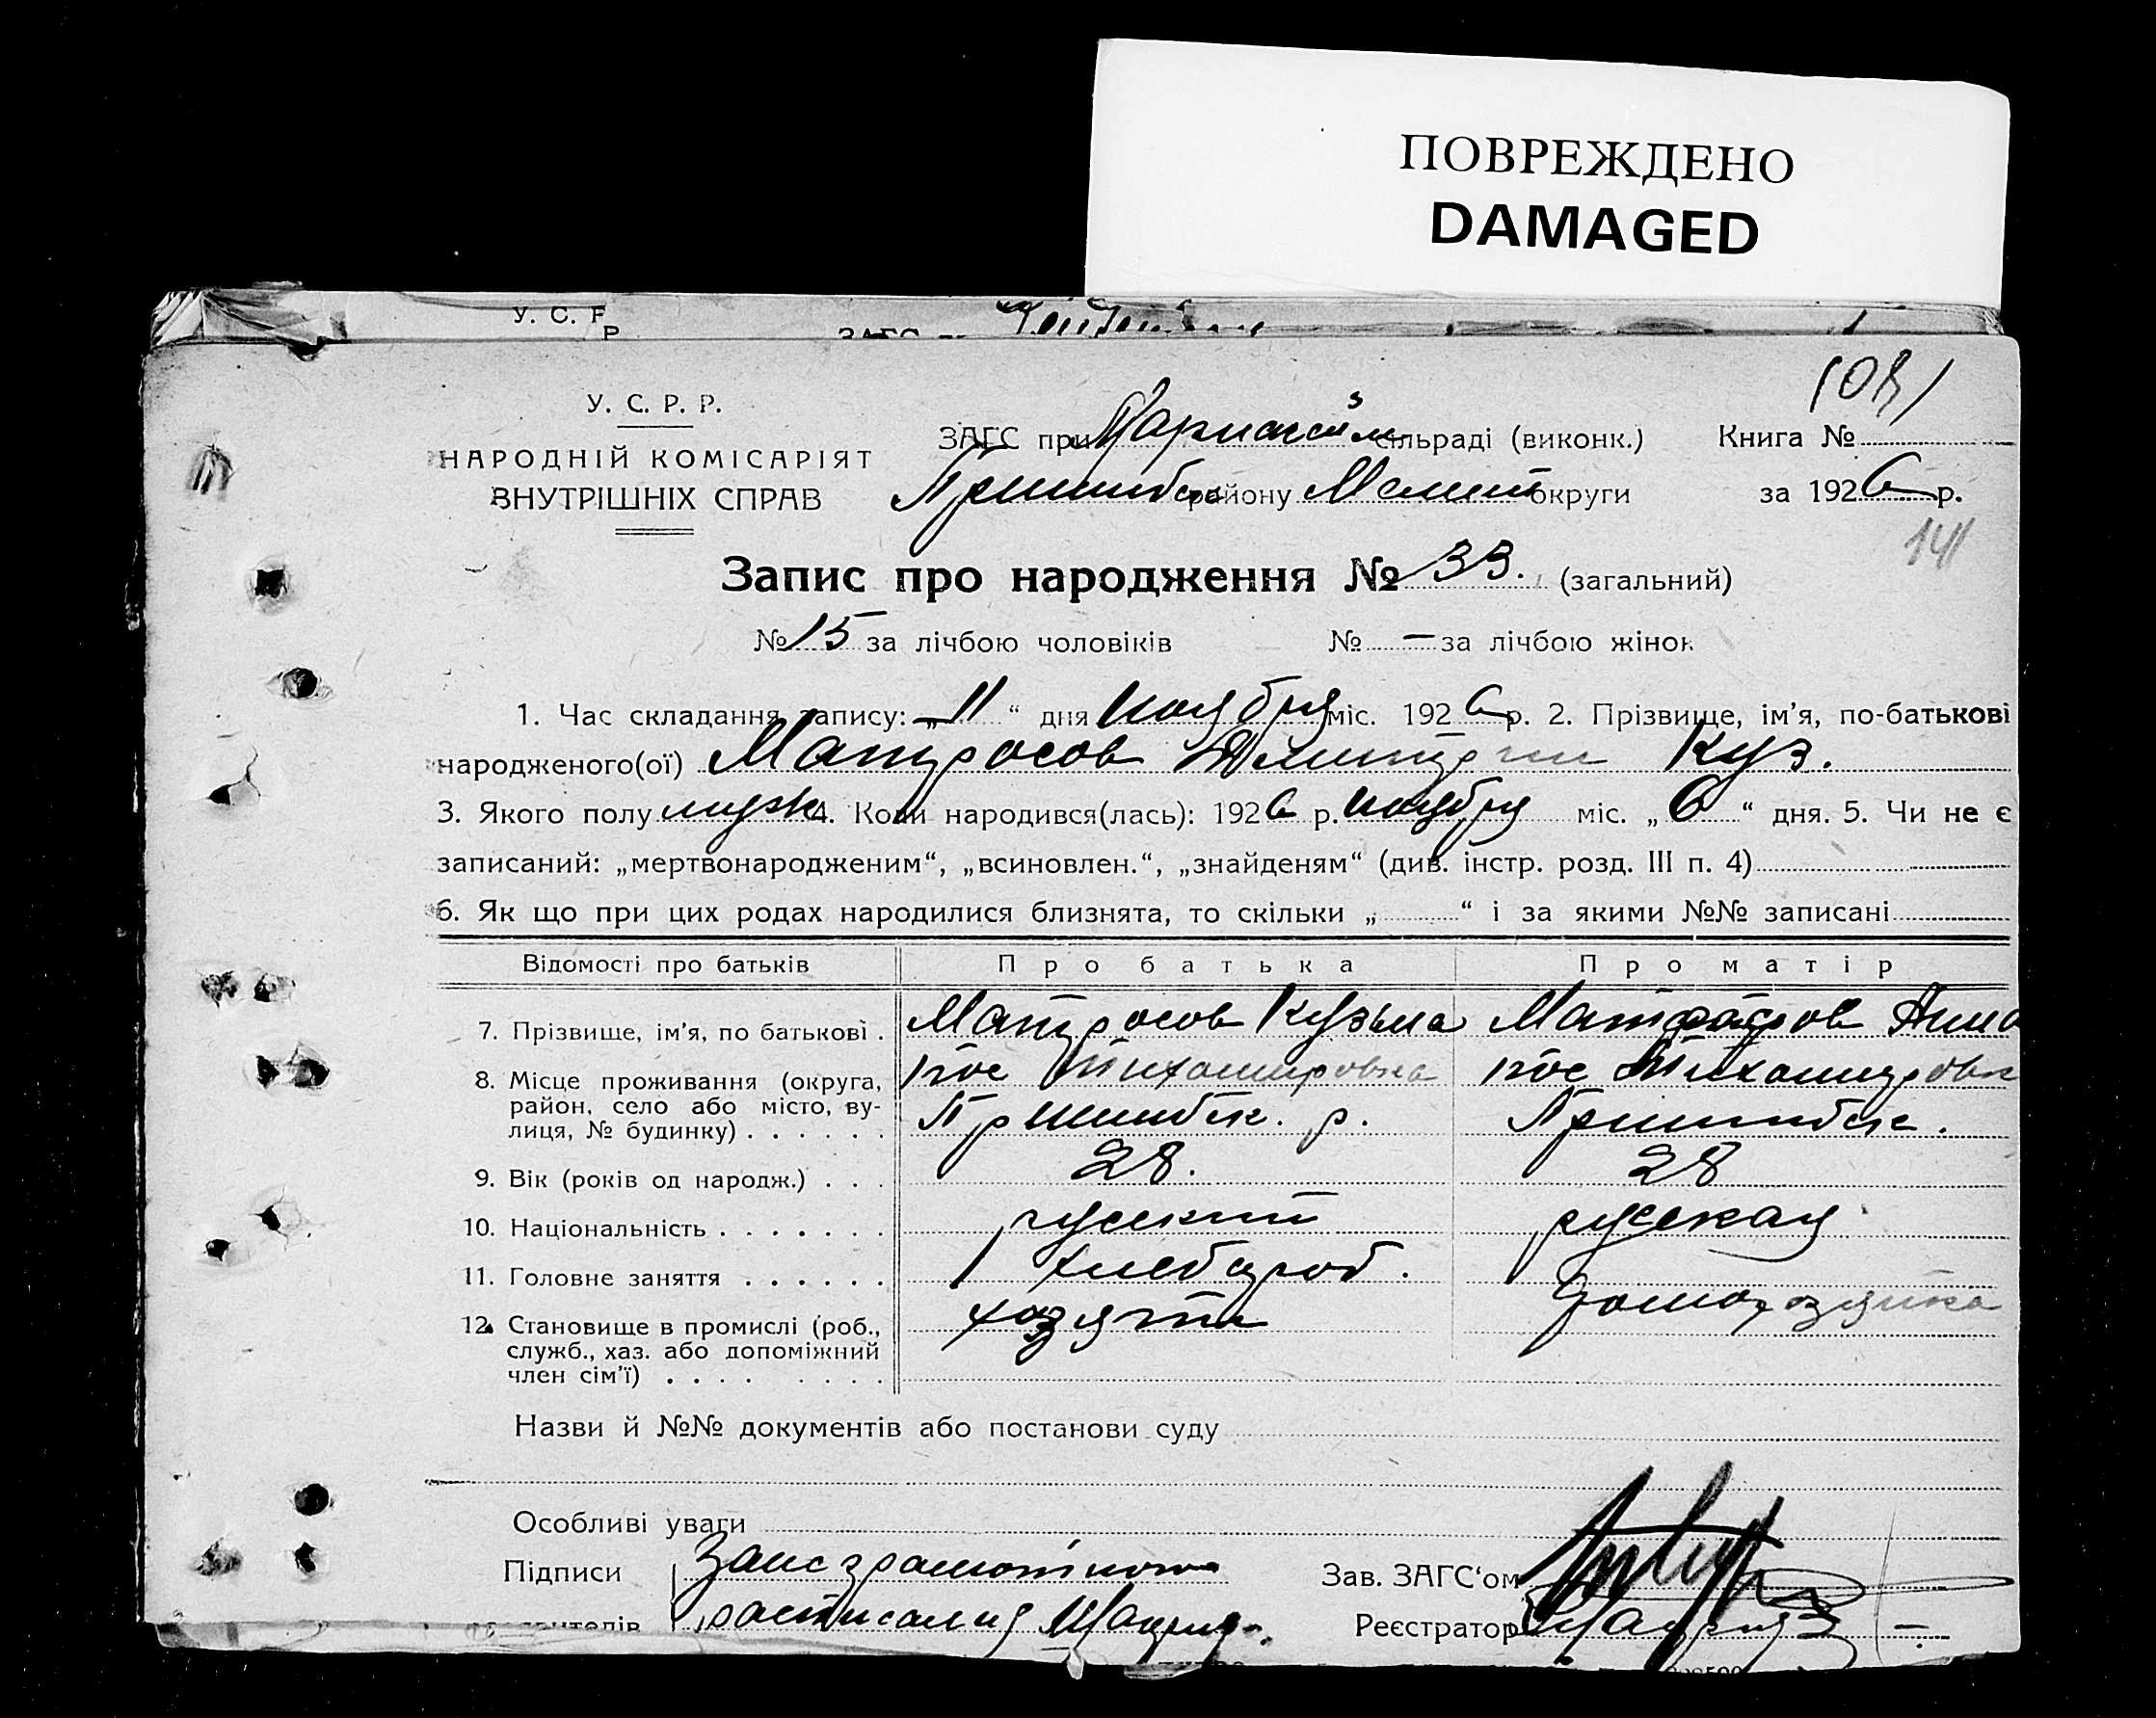 ПОВРЕЖДЕНО
DAMAGED
У. С. Р. Р.
НАРОДНІЙ КОМІСАРІЯТ
ВНУТРІШНІХ СПРАВ
ЗАГС при сільраді (виконк.) Книга №
Пришибск району Мелит округи за 1926 р.
141
Запис про народження № 33. (загальний)
№ 15 за лічбою чоловіків № — за лічбою жінок
1. Час складання запису: „11“ дня ноября міс. 1926 р. 2. Прізвище, ім'я, по-батькові
народженого(ої) Матросов Димитрии Куз.
3. Якого полу мужс 4. Коли народився(лась): 1926 р. ноября міс. „6“ дня. 5. Чи не є
записаний: „мертвонародженим“, „всиновлен.“, „знайденям“ (див. інстр. розд. III п. 4)
6. Як що при цих родах народилися близнята, то скільки „ “ і за якими №№ записані
Відомості про батьків Про батька Про матір
7. Прізвище, ім'я, по батькові . Матросов Кузьма Анна
8. Місце проживання (округа, район, село або місто, вулиця, № будинку) . . . . . . пос Тихомировка Пришибск. р. пос Тихомировка Пришибск.
9. Вік (років од народж.) . . . 28. 28
10. Національність . . . . . . . русский русская
11. Головне заняття . . . . . . хлебороб. домохозяйка
12. Становище в промислі (роб., служб., хаз. або допоміжний член сім'ї) . . . . . . . . хозяин
Назви й №№ документів або постанови суду
Особливі уваги
Підписи Зав. ЗАГС'ом
расписался Реєстратор